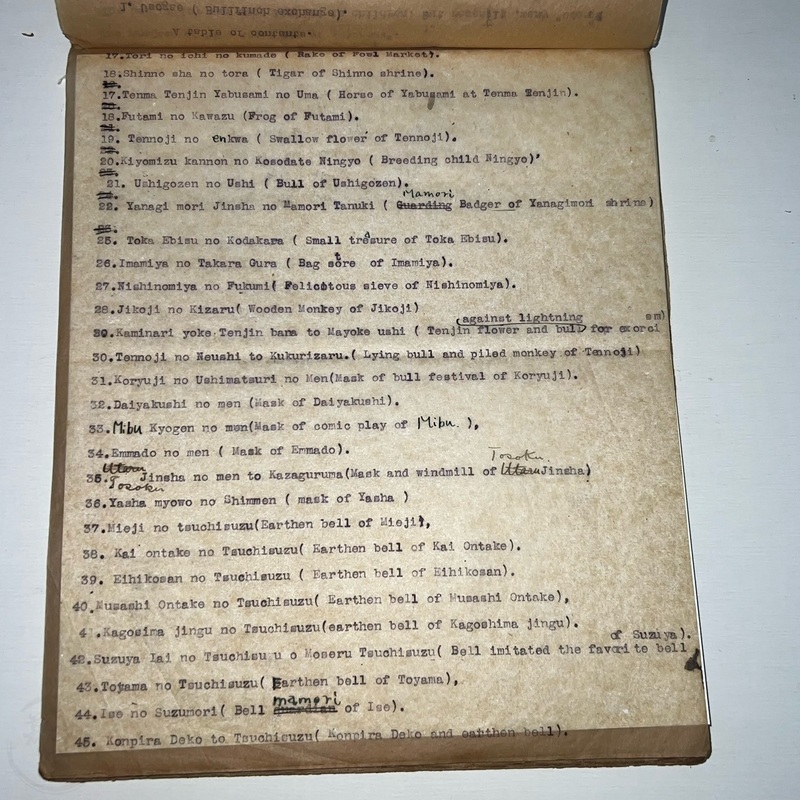 J. Usogae ( Bullfinch exchange).
A table of contents.
17.Tori no ichi no kumade ( Rake of Fowl Market).
18.Shinno sha no tora ( Tigar of Shinno shrine).
17.Tenma Tenjin Yabusami no Uma ( Horse of Yabusami at Tenma Tenjin).
18.Futami no Kawazu (Frog of Futami).
19. Tennoji no enkwa ( Swallow flower of Tennoji).
20.Kiyomizu kannon no Kosodate Ningyo ( Breeding child Ningyo)'
21. Ushigozen no Ushi ( Bull of Ushigozen).
Mamori
22. Yanagi mori Jinsha no Mamori Tanuki ( Guarding Badger of Yanagimori shrine)
25. Toka Ebisu no Kodakara ( Small tresure of Toka Ebisu).
26.Imamiya no Takara Gura ( Bag store of Imamiya).
27.Nishinomiya no Fukumi( Felicitous sieve of Nishinomiya).
28.Jikoji no Kizaru( Wooden Monkey of Jikoji)
(against lightning sm)
29.Kaminari yoke Tenjin bana to Mayoke ushi ( Tenjin flower and bull for exorci
30.Tennoji no Neushi to Kukurizaru.( Lying bull and piled monkey of Tennoji)
31.Koryuji no Ushimatsuri no Men(Mask of bull festival of Koryuji).
32.Daiyakushi no men (Mask of Daiyakushi).
33.Mibu Kyogen no men(Mask of comic play of Mibu. ),
34.Emmado no men ( Mask of Emmado).
Utaru Tosoku.
35. Jinsha no men to Kazaguruma(Mask and windmill of Utaru Jinsha)
Tosoku
36.Yasha myowo no Shimmen ( mask of Yasha )
37.Mieji no tsuchisuzu(Earthen bell of Mieji),
38. Kai ontake no Tsuchisuzu( Earthen bell of Kai Ontake).
39. Eihikosan no Tsuchisuzu ( Earthen bell of Eihikosan).
40.Musashi Ontake no Tsuchisuzu( Earthen bell of Musashi Ontake),
41.Kagosima jingu no Tsuchisuzu(earthen bell of Kagoshima jingu).
of Suzuya).
42.Suzuya Iai no Tsuchisu u o Moseru Tsuchisuzu( Bell imitated the favorite bell
43.Tojama no Tsuchisuzu( Earthen bell of Toyama),
mamori
44.Ise no Suzumori( Bell guardian of Ise).
45. Konpira Deko to Tsuchisuzu( Konpira Deko and earthen bell).